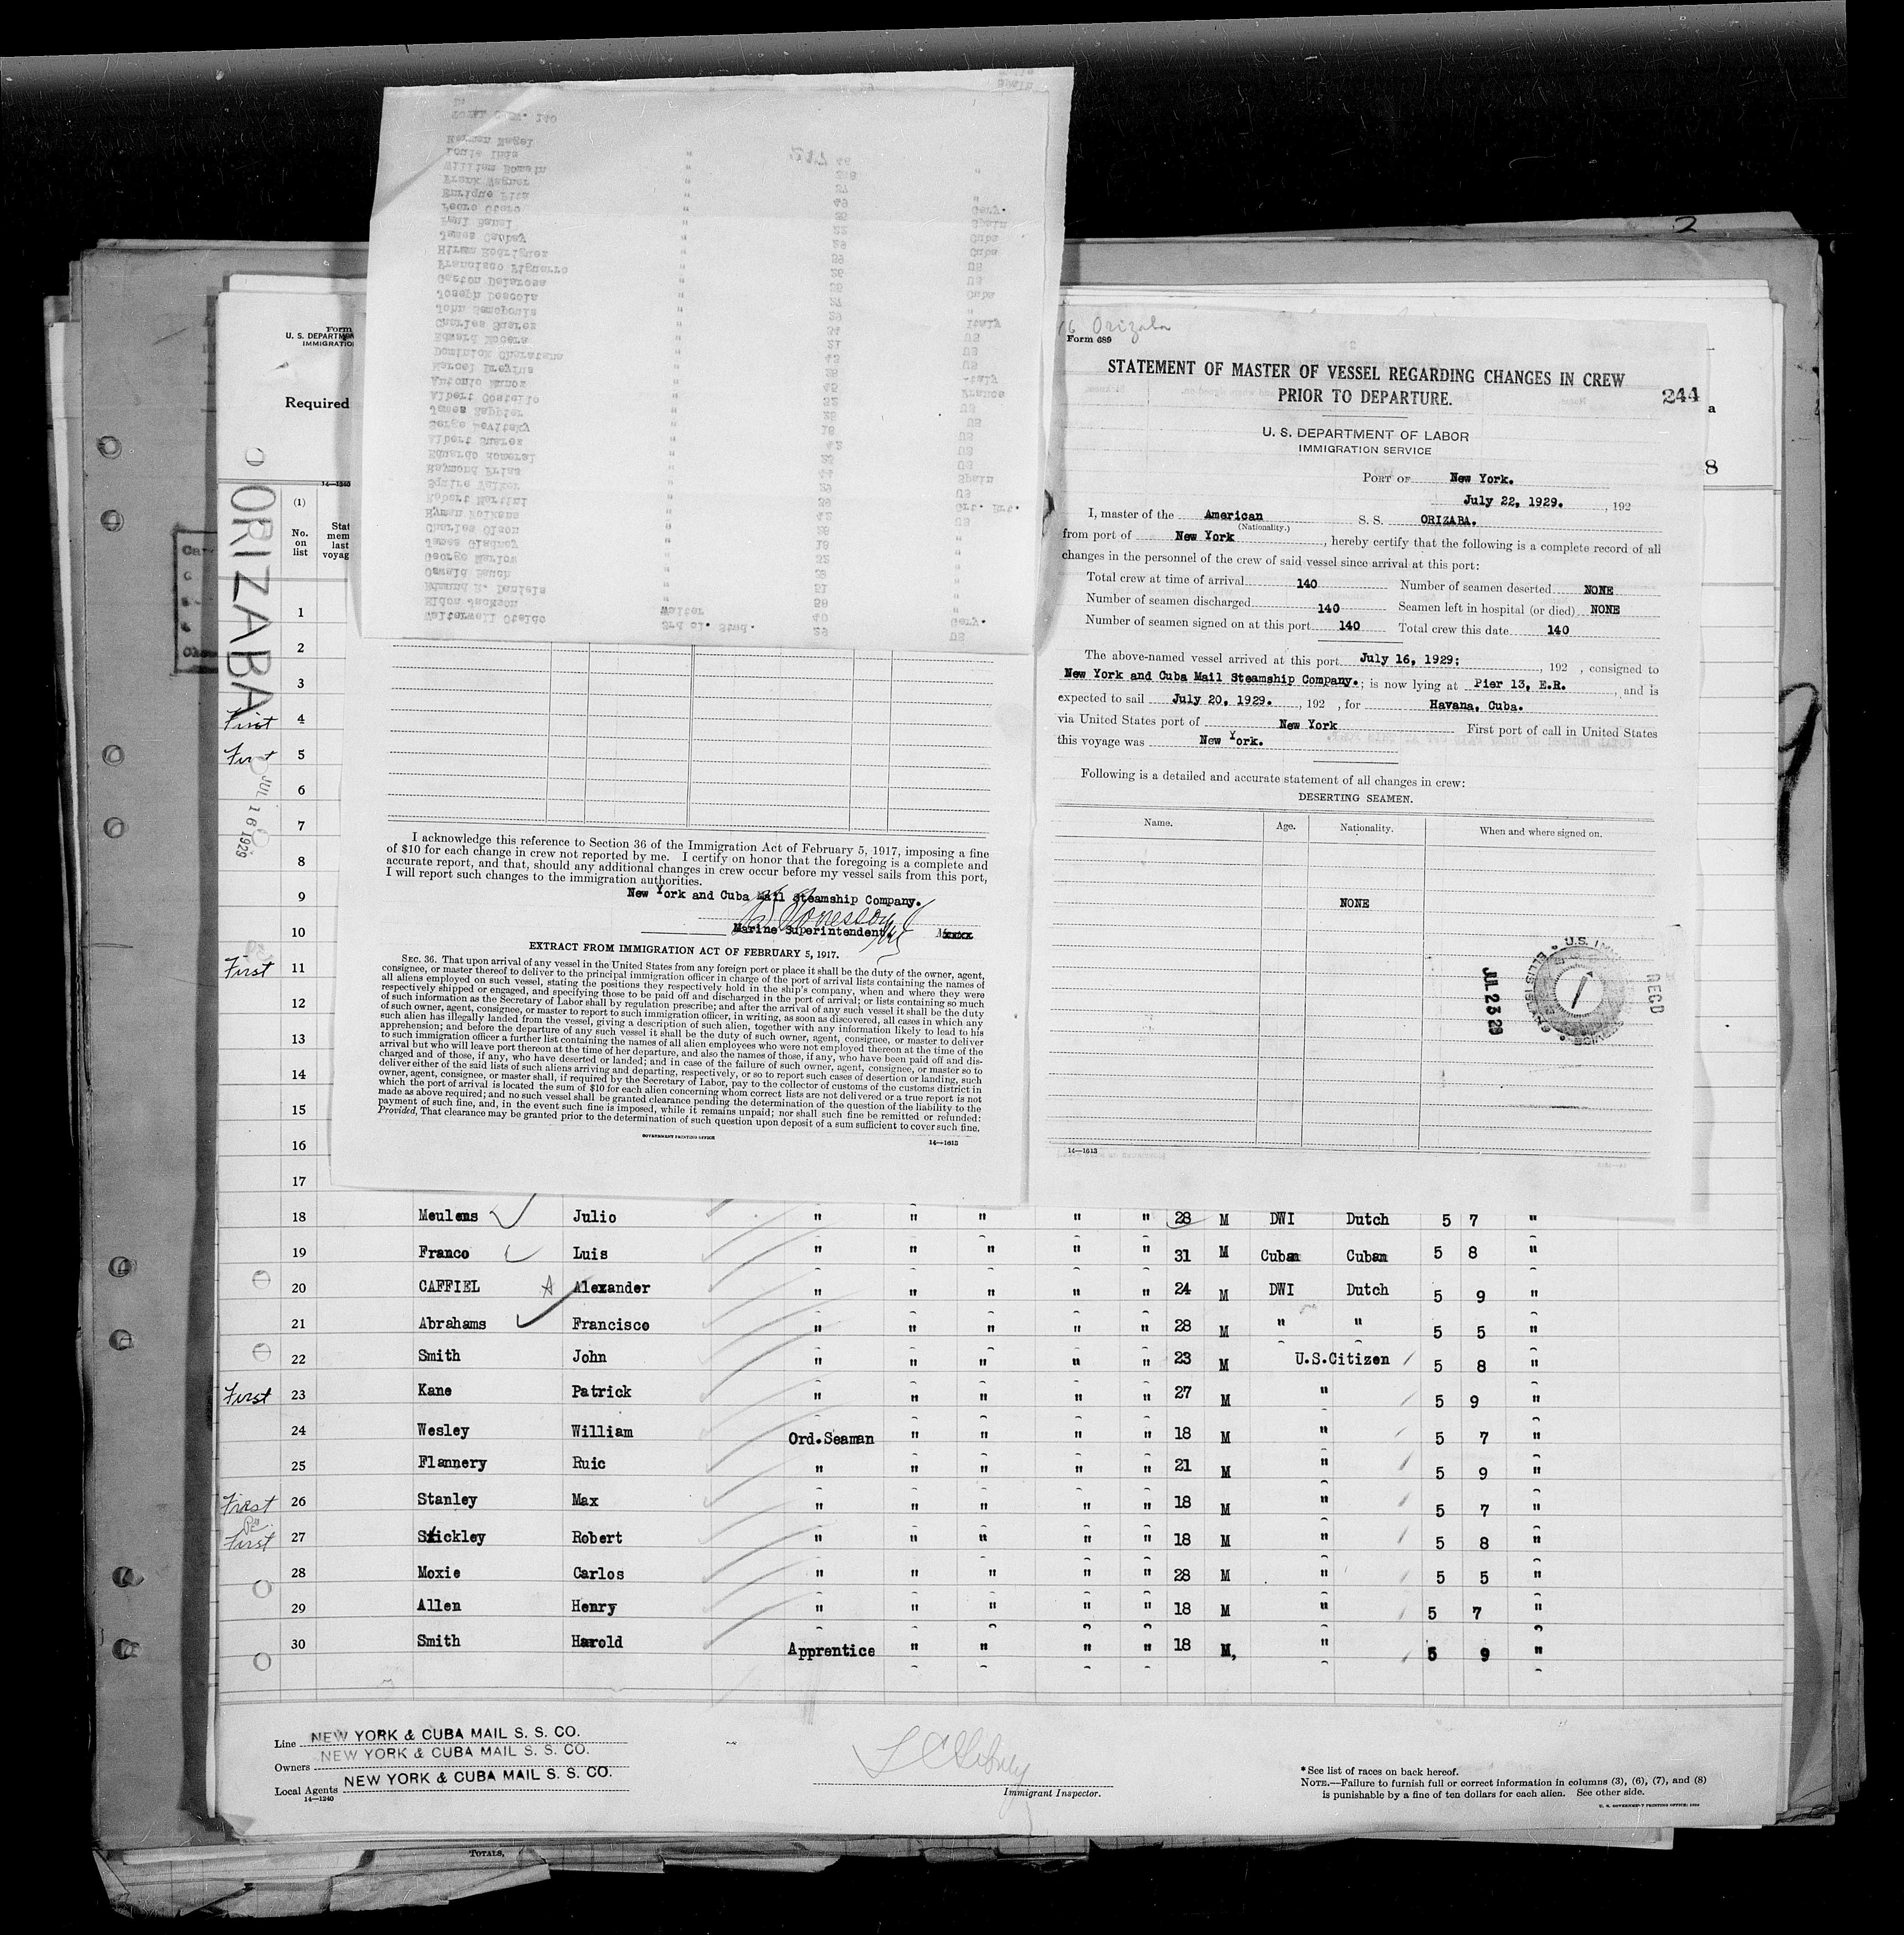 2
16 Orizaba
Form 689
STATEMENT OF MASTER OF VESSEL REGARDING CHANGES IN CREW
PRIOR TO DEPARTURE.
244
U. S. DEPARTMENT OF LABOR
IMMIGRATION SERVICE
PORT OF New York.
July 22, 1929. , 192
I, master of the American S. S. ORIZABA.
(Nationality.)
from port of New York , hereby certify that the following is a complete record of all
changes in the personnel of the crew of said vessel since arrival at this port:
Total crew at time of arrival 140 Number of seamen deserted NONE
Number of seamen discharged 140 Seamen left in hospital (or died) NONE
Number of seamen signed on at this port 140 Total crew this date 140
The above-named vessel arrived at this port July 16, 1929; , 192 , consigned to
New York and Cuba Mail Steamship Company.; is now lying at Pier 13, E.R. , and is
expected to sail July 20, 1929. , 192 , for Havana, Cuba.
via United States port of New York First port of call in United States
this voyage was New York.
Following is a detailed and accurate statement of all changes in crew:
DESERTING SEAMEN.
Name. Age. Nationality. When and where signed on.
NONE
JUL 23 29
RECD
14—1613
Form
U. S. DEPARTM
IMMIGRATIO
Required
14—1240
ORIZABA
JUL 16 1929
(1)
No. on list
Stat
mem
last
voyag
a
8
Walterwell Oteldo 3rd cl. Stwd. 29 US
Eldon Jackson Waiter 40 Gery.
Edmund R. Daniels " 59 "
Oswald Bauch " 31 "
George Marlow "
James Gladney "
Charles Olson "
Hyman Kolkans "
Robert Martini "
Squire Walker "
Raymond Frins "
Eduardo Romeral "
Albert Suarez "
Serge Levitsky "
James Kappler "
Albert Costello "
Antonio Munoz "
Marcel Dreyfus "
Dominick Charatans "
Edward Rogers "
Charles Suarez "
John Senopouls "
Joseph Descola "
Gaston Delarosa "
Francisco Figuarro "
Hiram Rodriguez "
James Canbey "
Paul Banal "
Pedro Otaro "
Enrique Pita "
Frank Wagner "
William Romain "
Louis Inda "
Herman Nagel
TOTAL CREW. 140
I acknowledge this reference to Section 36 of the Immigration Act of February 5, 1917, imposing a fine
of $10 for each change in crew not reported by me. I certify on honor that the foregoing is a complete and
accurate report, and that, should any additional changes in crew occur before my vessel sails from this port,
I will report such changes to the immigration authorities.
New York and Cuba Mail Steamship Company.
Marine Superintendent.
EXTRACT FROM IMMIGRATION ACT OF FEBRUARY 5, 1917.
SEC. 36. That upon arrival of any vessel in the United States from any foreign port or place it shall be the duty of the owner, agent,
consignee, or master thereof to deliver to the principal immigration officer in charge of the port of arrival lists containing the names of
all aliens employed on such vessel, stating the positions they respectively hold in the ship's company, when and where they were
respectively shipped or engaged, and specifying those to be paid off and discharged in the port of arrival; or lists containing so much
of such information as the Secretary of Labor shall by regulation prescribe; and after the arrival of any such vessel it shall be the duty
of such owner, agent, consignee, or master to report to such immigration officer, in writing, as soon as discovered, all cases in which any
such alien has illegally landed from the vessel, giving a description of such alien, together with any information likely to lead to his
apprehension; and before the departure of any such vessel it shall be the duty of such owner, agent, consignee, or master to deliver
to such immigration officer a further list containing the names of all alien employees who were not employed thereon at the time of the
arrival but who will leave port thereon at the time of her departure, and also the names of those, if any, who have been paid off and dis-
charged and of those, if any, who have deserted or landed; and in case of the failure of such owner, agent, consignee, or master so to
deliver either of the said lists of such aliens arriving and departing, respectively, or so to report such cases of desertion or landing, such
owner, agent, consignee, or master shall, if required by the Secretary of Labor, pay to the collector of customs of the customs district in
which the port of arrival is located the sum of $10 for each alien concerning whom correct lists are not delivered or a true report is not
made as above required; and no such vessel shall be granted clearance pending the determination of the question of the liability to the
payment of such fine, and, in the event such fine is imposed, while it remains unpaid; nor shall such fine be remitted or refunded:
Provided, That clearance may be granted prior to the determination of such question upon deposit of a sum sufficient to cover such fine.
GOVERNMENT PRINTING OFFICE
14—1613
1
2
3
First 4
First 5
6
7
8
9
10
First 11
12
13
14
15
16
17
18 Meulens Julio " " " " " 28 M DWI Dutch 5 7 "
19 Franco Luis " " " " " 31 M Cuban Cuban 5 8 "
20 CAFFIEL Alexander " " " " " 24 M DWI Dutch 5 9 "
21 Abrahams Francisco " " " " " 28 M " " 5 5 "
22 Smith John " " " " " 23 M U.S.Citizen 5 8 "
First 23 Kane Patrick " " " " " 27 M " 5 9 "
24 Wesley William Ord.Seaman " " " " 18 M " 5 7 "
25 Flannery Ruic " " " " " 21 M " 5 9 "
First 26 Stanley Max " " " " " 18 M " 5 7 "
First 27 Stickley Robert " " " " " 18 M " 5 8 "
28 Moxie Carlos " " " " " 28 M " 5 5 "
29 Allen Henry " " " " " 18 M " 5 7 "
30 Smith Harold Apprentice " " " " 18 M, " 5 9 "
Line NEW YORK & CUBA MAIL S. S. CO.
Owners NEW YORK & CUBA MAIL S. S. CO.
Local Agents NEW YORK & CUBA MAIL S. S. CO.
14—1240
Immigrant Inspector.
*See list of races on back hereof.
NOTE.—Failure to furnish full or correct information in columns (3), (6), (7), and (8)
is punishable by a fine of ten dollars for each alien. See other side.
TOTALS,